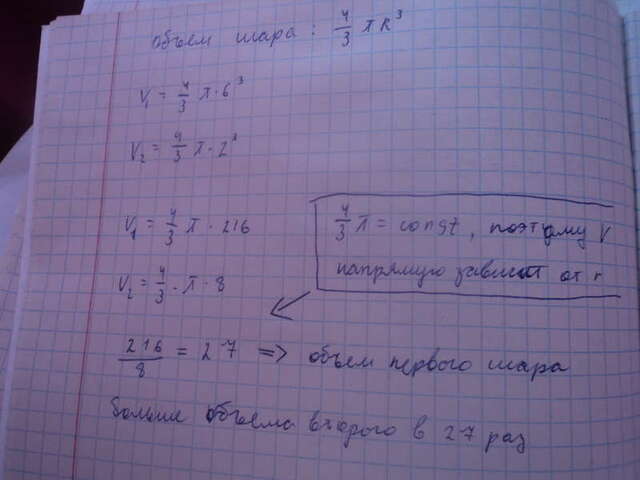 объем шара: 4/3 π R³
V₁ = 4/3 π · 6³
V₂ = 4/3 π · 2³
V₁ = 4/3 π · 216
V₂ = 4/3 · π · 8
4/3 π = const, поэтому V
напрямую зависит от r
216/8 = 27 => объем первого шара
больше объема второго в 27 раз